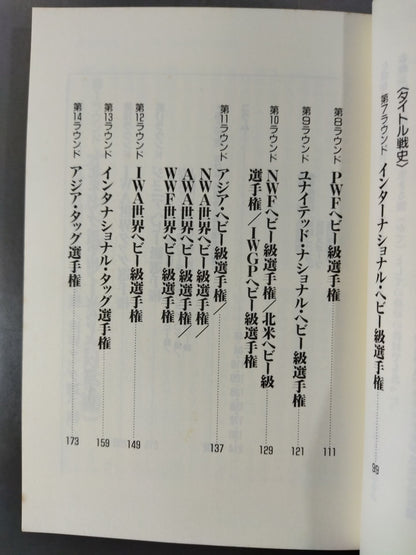 〈タイトル戦史〉
第7ラウンド インターナショナル・ヘビー級選手権 99
第8ラウンド PWFヘビー級選手権 111
第9ラウンド ユナイテッド・ナショナル・ヘビー級選手権 121
第10ラウンド NWFヘビー級選手権/北米ヘビー級
選手権/IWGPヘビー級選手権 129
第11ラウンド アジア・ヘビー級選手権/
NWA世界ヘビー級選手権/
AWA世界ヘビー級選手権/
WWF世界ヘビー級選手権 137
第12ラウンド IWA世界ヘビー級選手権 149
第13ラウンド インタナショナル・タッグ選手権 159
第14ラウンド アジア・タッグ選手権 173